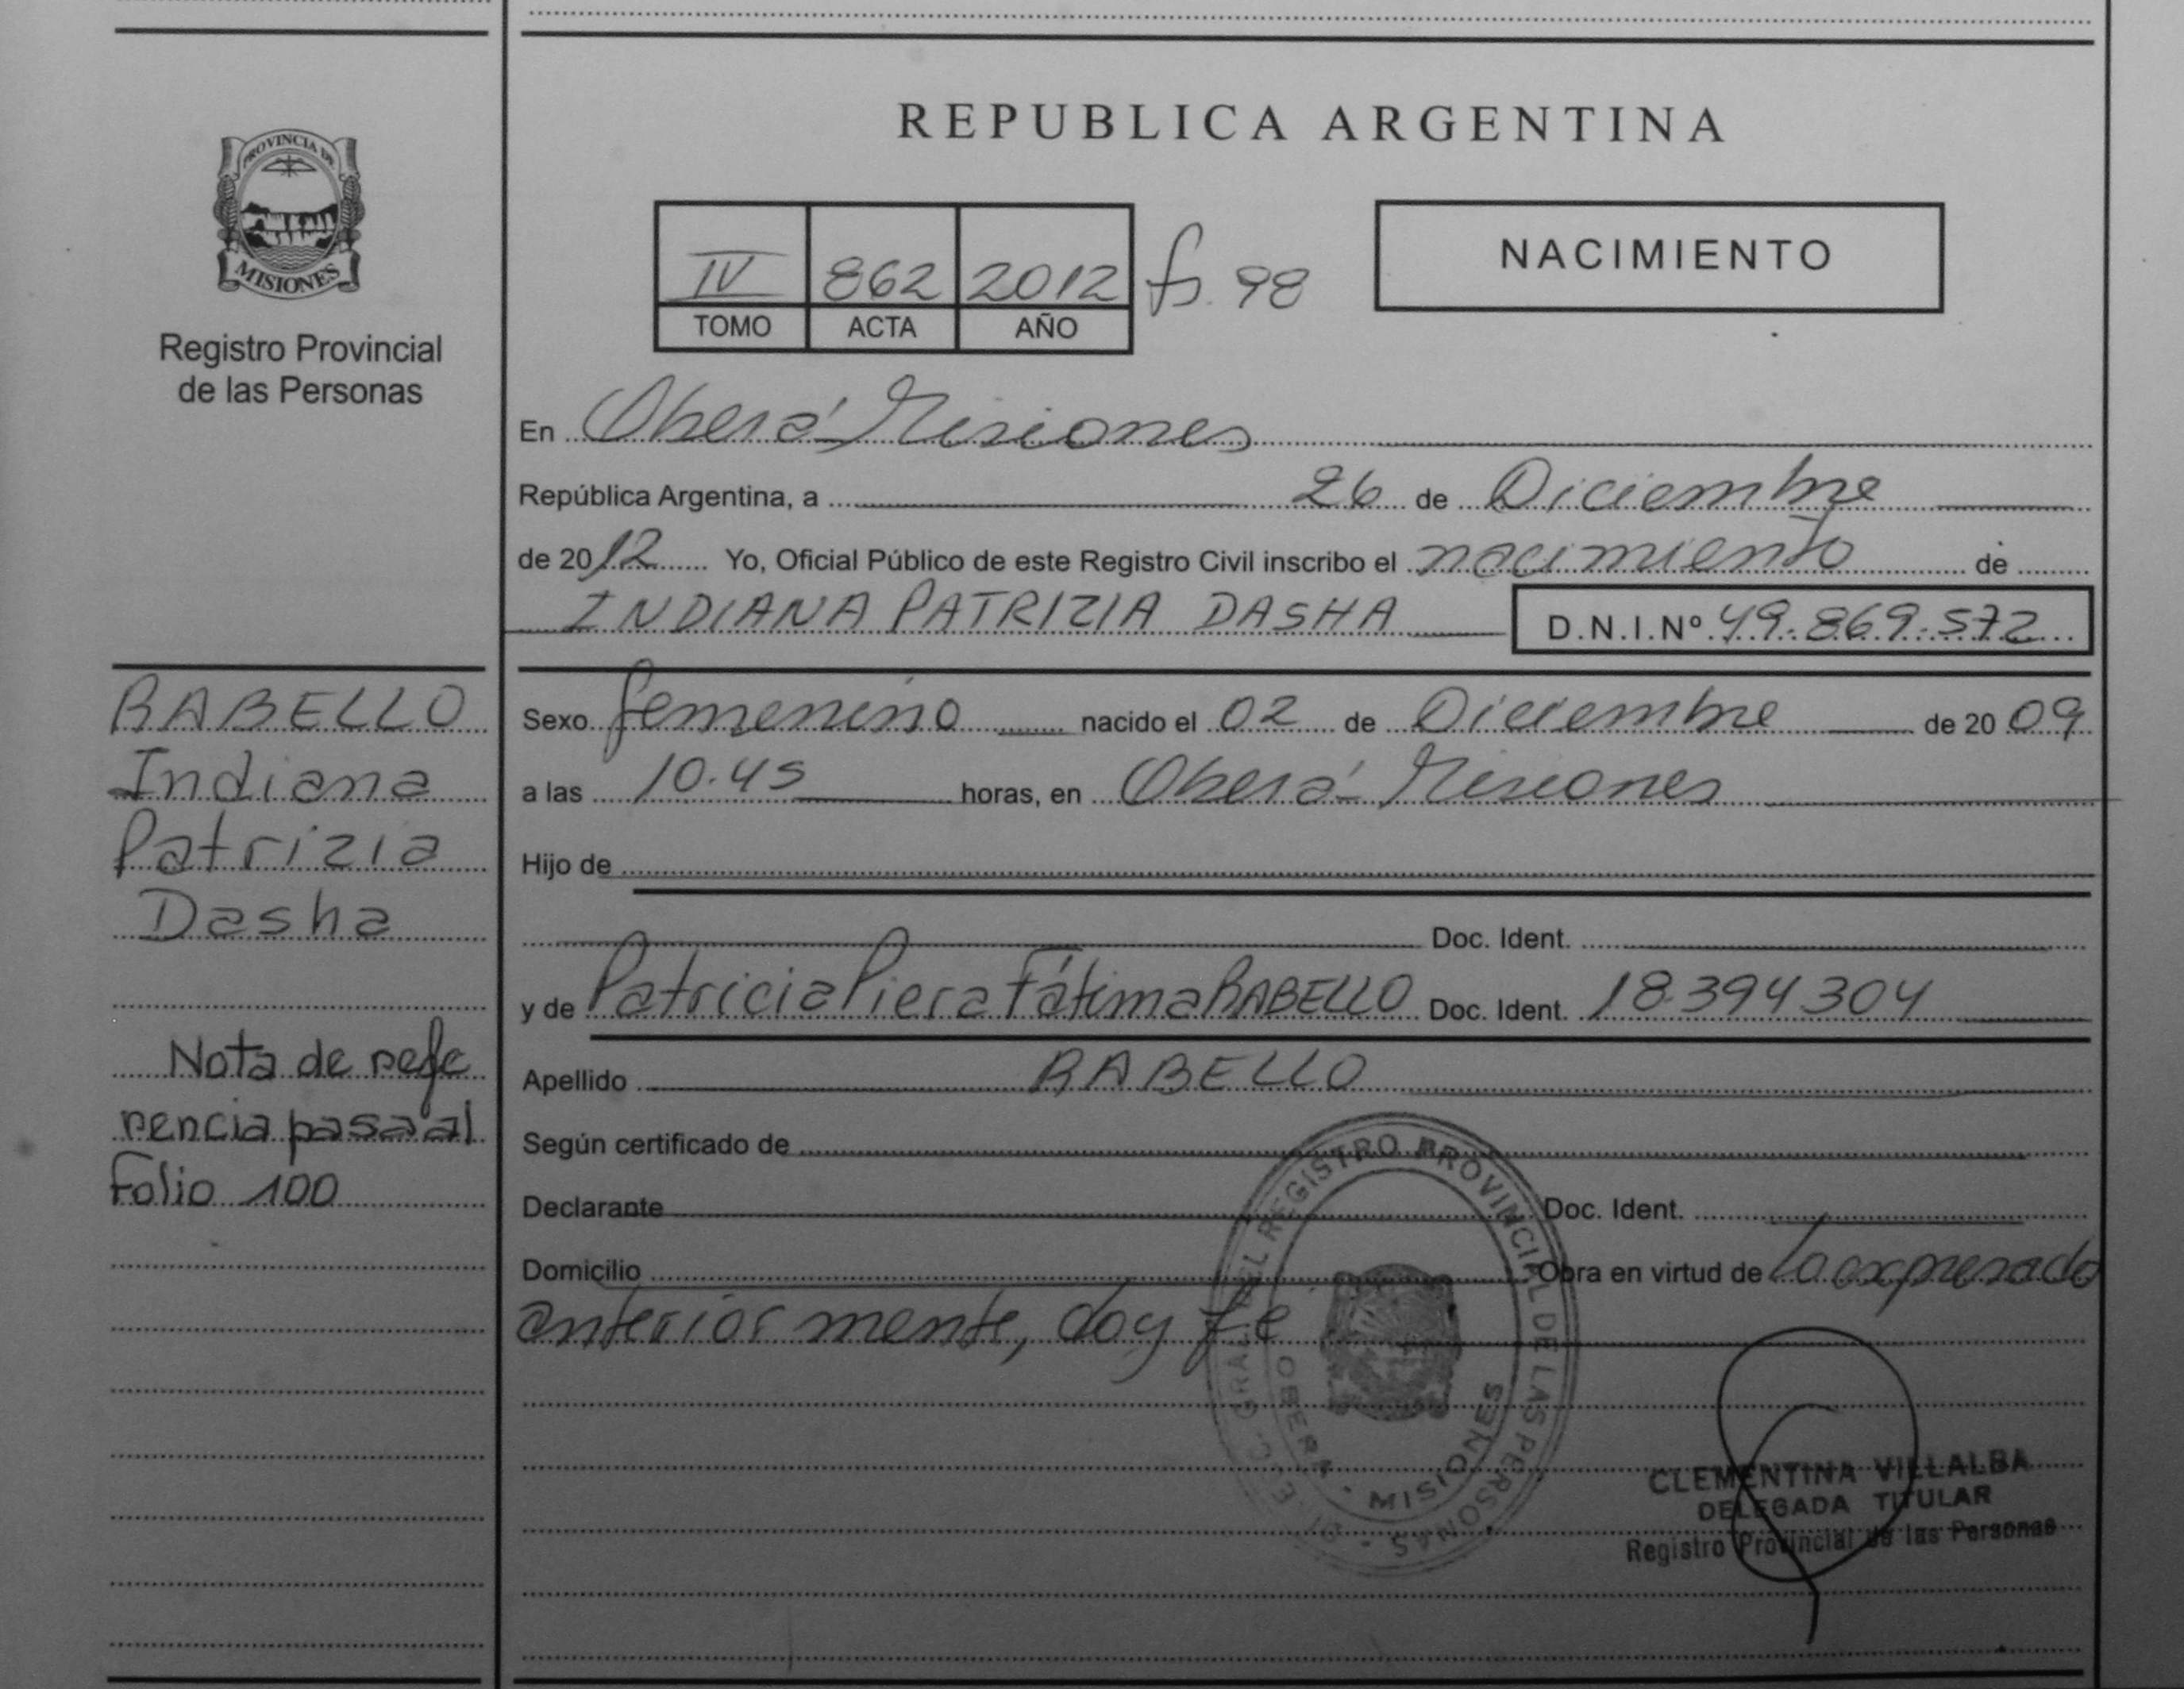 REPUBLICA ARGENTINA
PROVINCIA DE
MISIONES
Registro Provincial
de las Personas
IV 862 2012 fs. 98
TOMO ACTA AÑO
NACIMIENTO
En Oberá Misiones
República Argentina, a 26 de Diciembre
de 2012 Yo, Oficial Público de este Registro Civil inscribo el nacimiento de
INDIANA PATRIZIA DASHA D.N.I.Nº 49.869.572
RABELLO
Indiana
Patrizia
Dasha
Nota de refe
rencia pasa al
Folio 100
Sexo femenino nacido el 02 de Diciembre de 2009
a las 10.45 horas, en Oberá Misiones
Hijo de
Doc. Ident.
y de Patricia Piera Fátima RABELLO Doc. Ident. 18.394.304
Apellido RABELLO
Según certificado de
Declarante Doc. Ident.
Domicilio Obra en virtud de lo expresado
anterior mente, doy fe
GRAL. DEL REGISTRO PROVINCIAL DE LAS PERSONAS
OBERA - MISIONES
CLEMENTINA VILLALBA
DELEGADA TITULAR
Registro Provincial de las Personas